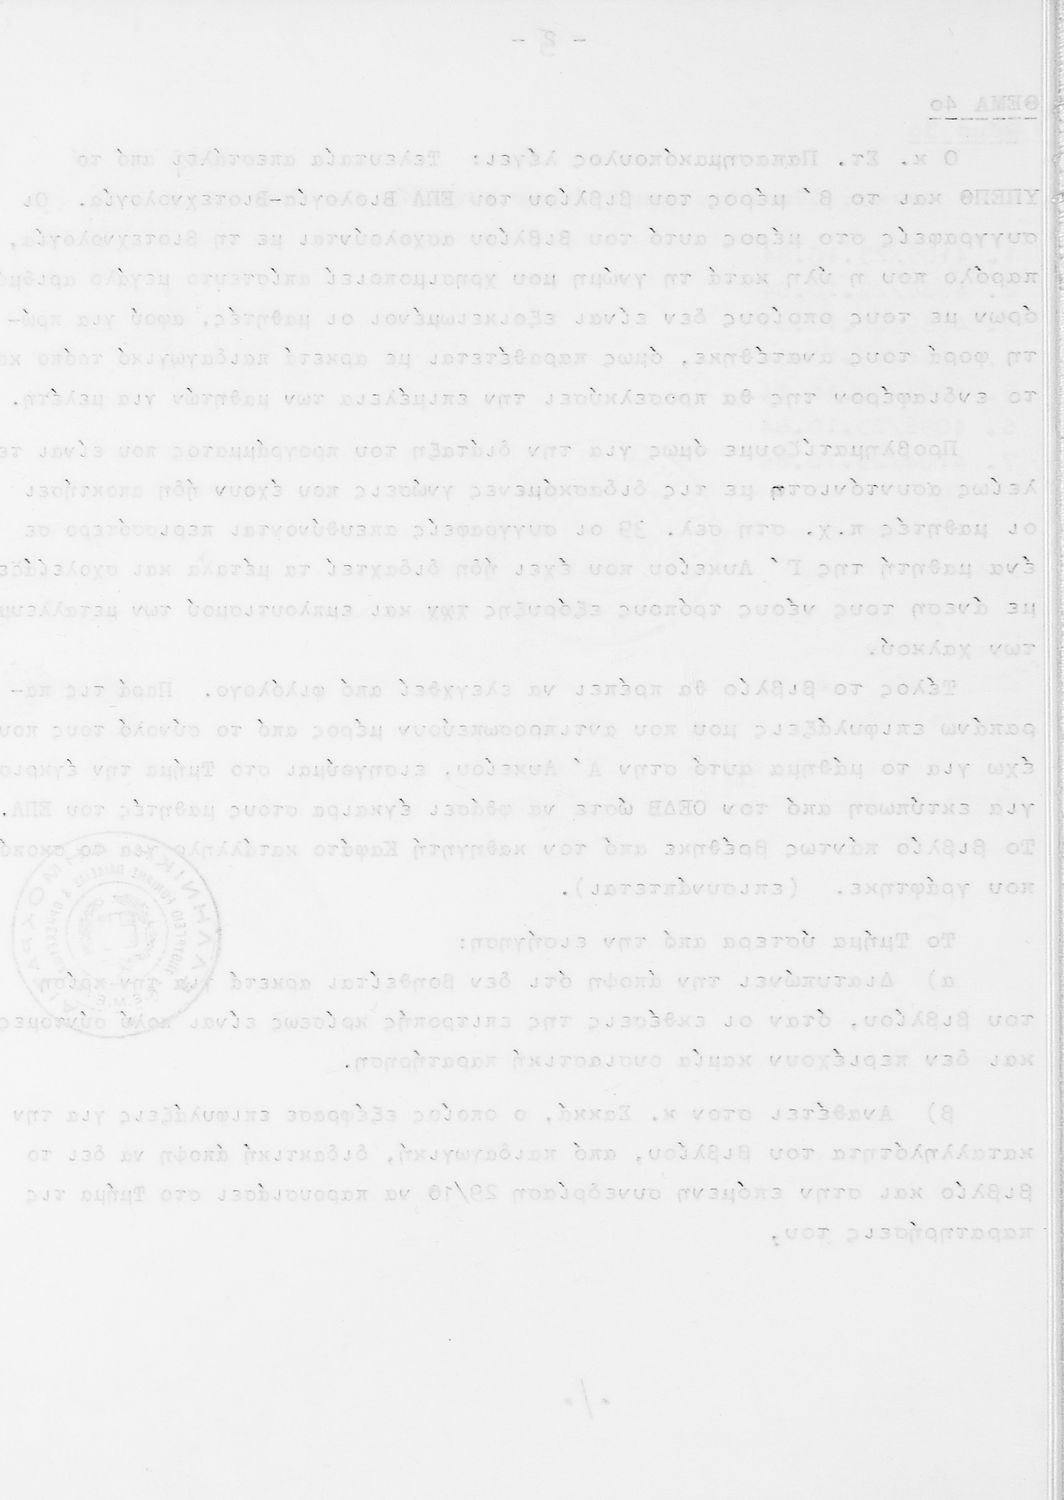 - 2 -
ΘΕΜΑ 4ο
Ο κ. Στ. Παπασημακόπουλος λέγει: Τελευταία απεστάλει από το
ΥΠΕΠΘ και το Β΄ μέρος του βιβλίου του ΕΠΛ Βιολογία-Βιοτεχνολογία. Οι
συγγραφείς στο μέρος αυτό του βιβλίου ασχολούνται με τη βιοτεχνολογία,
παρόλο που η ύλη κατά τη γνώμη μου χρησιμοποιεί απίστευτο μεγάλο αριθμό
όρων με τους οποίους δεν είναι εξοικειωμένοι οι μαθητές, αφού για πρώ-
τη φορά τους ανατέθηκε, όμως παραθέτεται με αρκετά παιδαγωγικό τρόπο κα
το ενδιαφέρον της θα προσελκύσει την επιμέλεια των μαθητών για μελέτη.
Προβληματίζουμε όμως για την διάταξη του προγράμματος που είναι τε
λείως ασυντόνιστη με τις διδασκόμενες γνώσεις που έχουν ήδη αποκτήσει
οι μαθητές π.χ. στη σελ. 39 οι συγγραφείς απευθύνονται περισσότερο σε
ένα μαθητή της Γ΄ Λυκείου που έχει ήδη διδαχτεί τα μέταλα και σχολειάζε
με άνεση τους νέους τρόπους εξόρυξης και εμπλουτισμού των μεταλλευμ
των χαλκού.
Τέλος το βιβλίο θα πρέπει να ελεγχθεί από φιλόλογο. Παρά τις πα-
ραπάνω επιφυλάξεις μου που αντιπροσωπεύουν μέρος από το σύνολό τους που
έχω για το μάθημα αυτό στην Α΄ Λυκείου, εισηγούμαι στο Τμήμα την έγκρισ
για εκτύπωση από τον ΟΕΔΒ ώστε να φθάσει έγκαιρα στους μαθητές του ΕΠΛ.
Το βιβλίο πάντως βρέθηκε από τον καθηγητή Καφάτο κατάλληλο για το σκοπό
που γράφτηκε. (επισυνάπτεται).
Το Τμήμα ύστερα από την εισήγηση:
α) Διατυπώνει την άποψη ότι δεν βοηθείται αρκετά για την κρίση
του βιβλίου, όταν οι εκθέσεις της επιτροπής κρίσεως είναι πολύ σύντομες
και δεν περιέχουν καμία ουσιαστική παρατήρηση.
β) Αναθέτει στον κ. Σακκά, ο οποίος εξέφρασε επιφυλάξεις για την
καταλληλότητα του βιβλίου, από παιδαγωγική, διδακτική άποψη να δει το
βιβλίο και στην επόμενη συνεδρίαση 29/10 να παρουσιάσει στο Τμήμα τις
παρατηρήσεις του.
./.